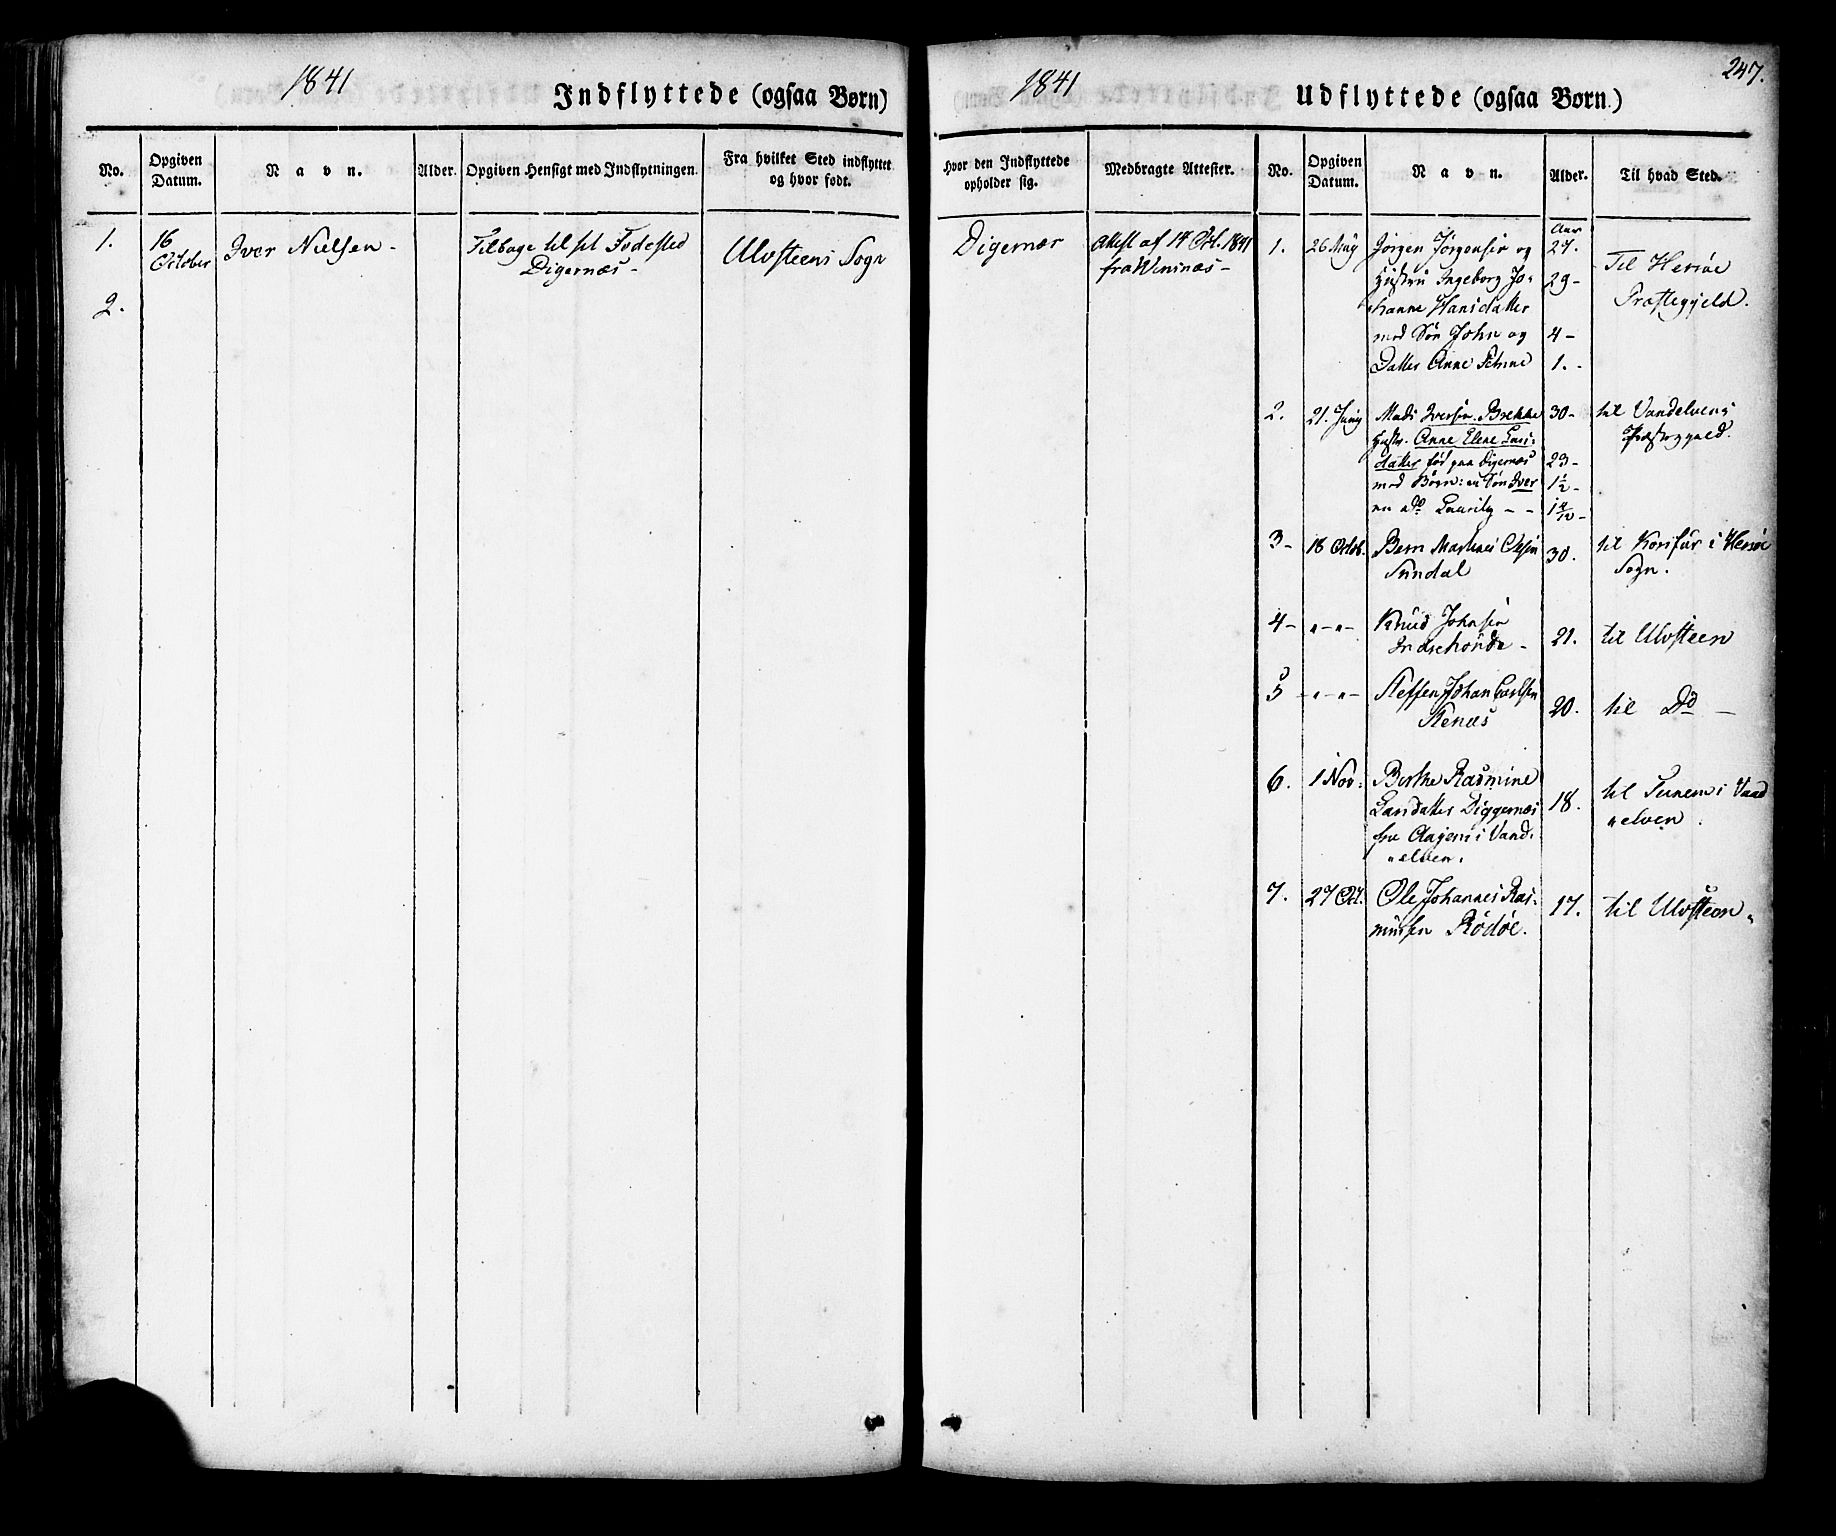 1841
Indflyttede (ogsaa Børn)
No.
Opgiven Datum.
Navn.
Alder.
Opgiven Hensigt med Indflytningen.
Fra hvilket Sted indflyttet og hvor født.
1.
16 October
Iver Nielsen -
Tilbage til sit Fødested
Digernæs -
Ulvsteens Sogn
2.
1841
Udflyttede (ogsaa Børn.)
247.
Hvor den Indflyttede opholder sig.
Medbragte Attester.
No.
Opgiven Datum.
Navn.
Alder.
Til hvad Sted.
Digernæs
Attest af 14 Oct. 1841
fra
1.
26 May
Jørgen Jørgensen og
Aar
27.
Hustru Ingeborg Jo-
29 -
hanne Hansdatter
med Søn John og
4 -
Datter Anne
1. -
Til Herøe
Præstegjeld.
2.
21. Juny
Mads Iversen Brekke
30 -
Hustr. Anne Elene Lars-
datter fød paa Digernæs
23 -
med Børn: en Søn Iver
1½ -
en do Lauritz - -
til Vandelvens
Præstegjæld.
3 -
18 Octob.
Bern Martines Olsen
Sundal
30.
til Korsfur i Herøe
Sogn.
4 -
" - " -
Knud Johnsen
Indrehønda -
21.
til Ulvsteen
5
- " - " -
Steffen Johan Carlsen
Stenæs
20.
til Do -
6.
1 Nov:
Berthe Rasmine
Larsdatter Diggernæs
fra Aagens i Vand-
"elven.
18.
til i Vand
"elven.
7.
27 Oct.
Ole Johannes Ras-
mussen Rødøe.
17.
til Ulvsteen "